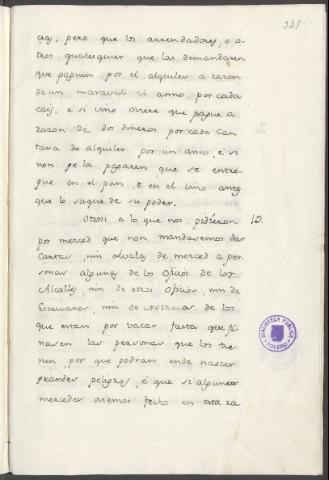 323
cias, pero que los arrendadores, o o-
tros qualesquier que las demandaren
que paguen por el alquiler a razon
de un maravedi el anno por cada
cais, e si vino oviere que pague a
razon de dos dineros por cada can
tara de alquiler por un anno, e si
non ge la pagaren, que se entre-
gue en el pan, e en el vino antes
que lo saque de su poder.
Otrosi a lo que nos pidieron 10.
por merced que non mandasemos dar
Cartas, nin alvala de merced a per-
sonas algunas de los oficios de los
Alcalles, nin de otros oficios, nin de
Escrivanos, nin de Notarias de los
que estan por vacar fasta que fi-
nasen las personas que los tie-
nen, por que podrian ende nascer
grandes peligros, e que si algunas
mercedes aviemos fecho en esta ra
BIBLIOTECA PUBLICA
TOLEDO